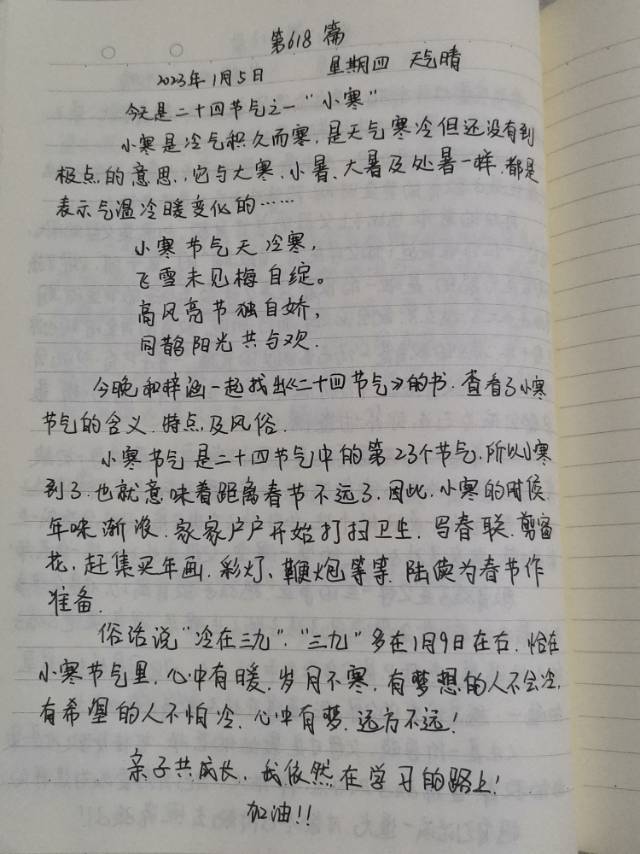 第618篇
2023年1月5日 星期四 天气晴
今天是二十四节气之一“小寒”
小寒是冷气积久而寒，是天气寒冷但还没有到
极点的意思，它与大寒、小暑、大暑及处暑一样，都是
表示气温冷暖变化的……
小寒节气天冷寒，
飞雪未见梅自绽。
高风亮节独自娇，
同韵阳光共与欢.
今晚和梓涵一起找出《二十四节气》的书.查看了小寒
节气的含义.特点及风俗.
小寒节气是二十四节气中的第23个节气，所以小寒
到了.也就意味着距离春节不远了.因此，小寒的时候，
年味渐浓.家家户户开始打扫卫生.写春联.剪窗
花，赶集买年画.彩灯、鞭炮等等.陆续为春节作
准备.
俗话说“冷在三九”.“三九”多在1月9日在右.恰在
小寒节气里，心中有暖，岁月不寒，有梦想的人不会冷，
有希望的人不怕冷.心中有梦.远方不远！
亲子共成长，我依然在学习的路上！
加油！！